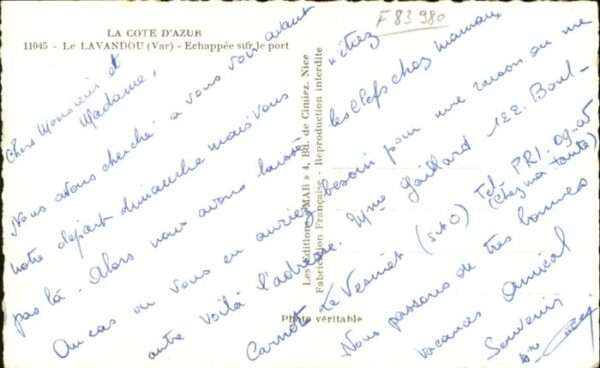 LA COTE D'AZUR
11045 - Le LAVANDOU (Var) - Echappée sur le port
F 83 980
Chers Monsieur et
Madame,
Nous avons cherché a vous voir avant
notre départ dimanche mais vous
n'étiez
pas là - Alors nous avons laissé les clefs chez maman
Au cas ou vous en auriez besoin pour une raison ou une
autre voilà l'adresse. Mme Gaillard 122 Boul-
Carnot Le Vesinet (S et O) Tel. PRI. 09-05
(Chez ma tante)
Nous passons de très bonnes
vacances Amical
Souvenir
Les Editions "MAR", 4, Bd. de Cimiez, Nice
Fabrication Française - Reproduction interdite
Photo véritable